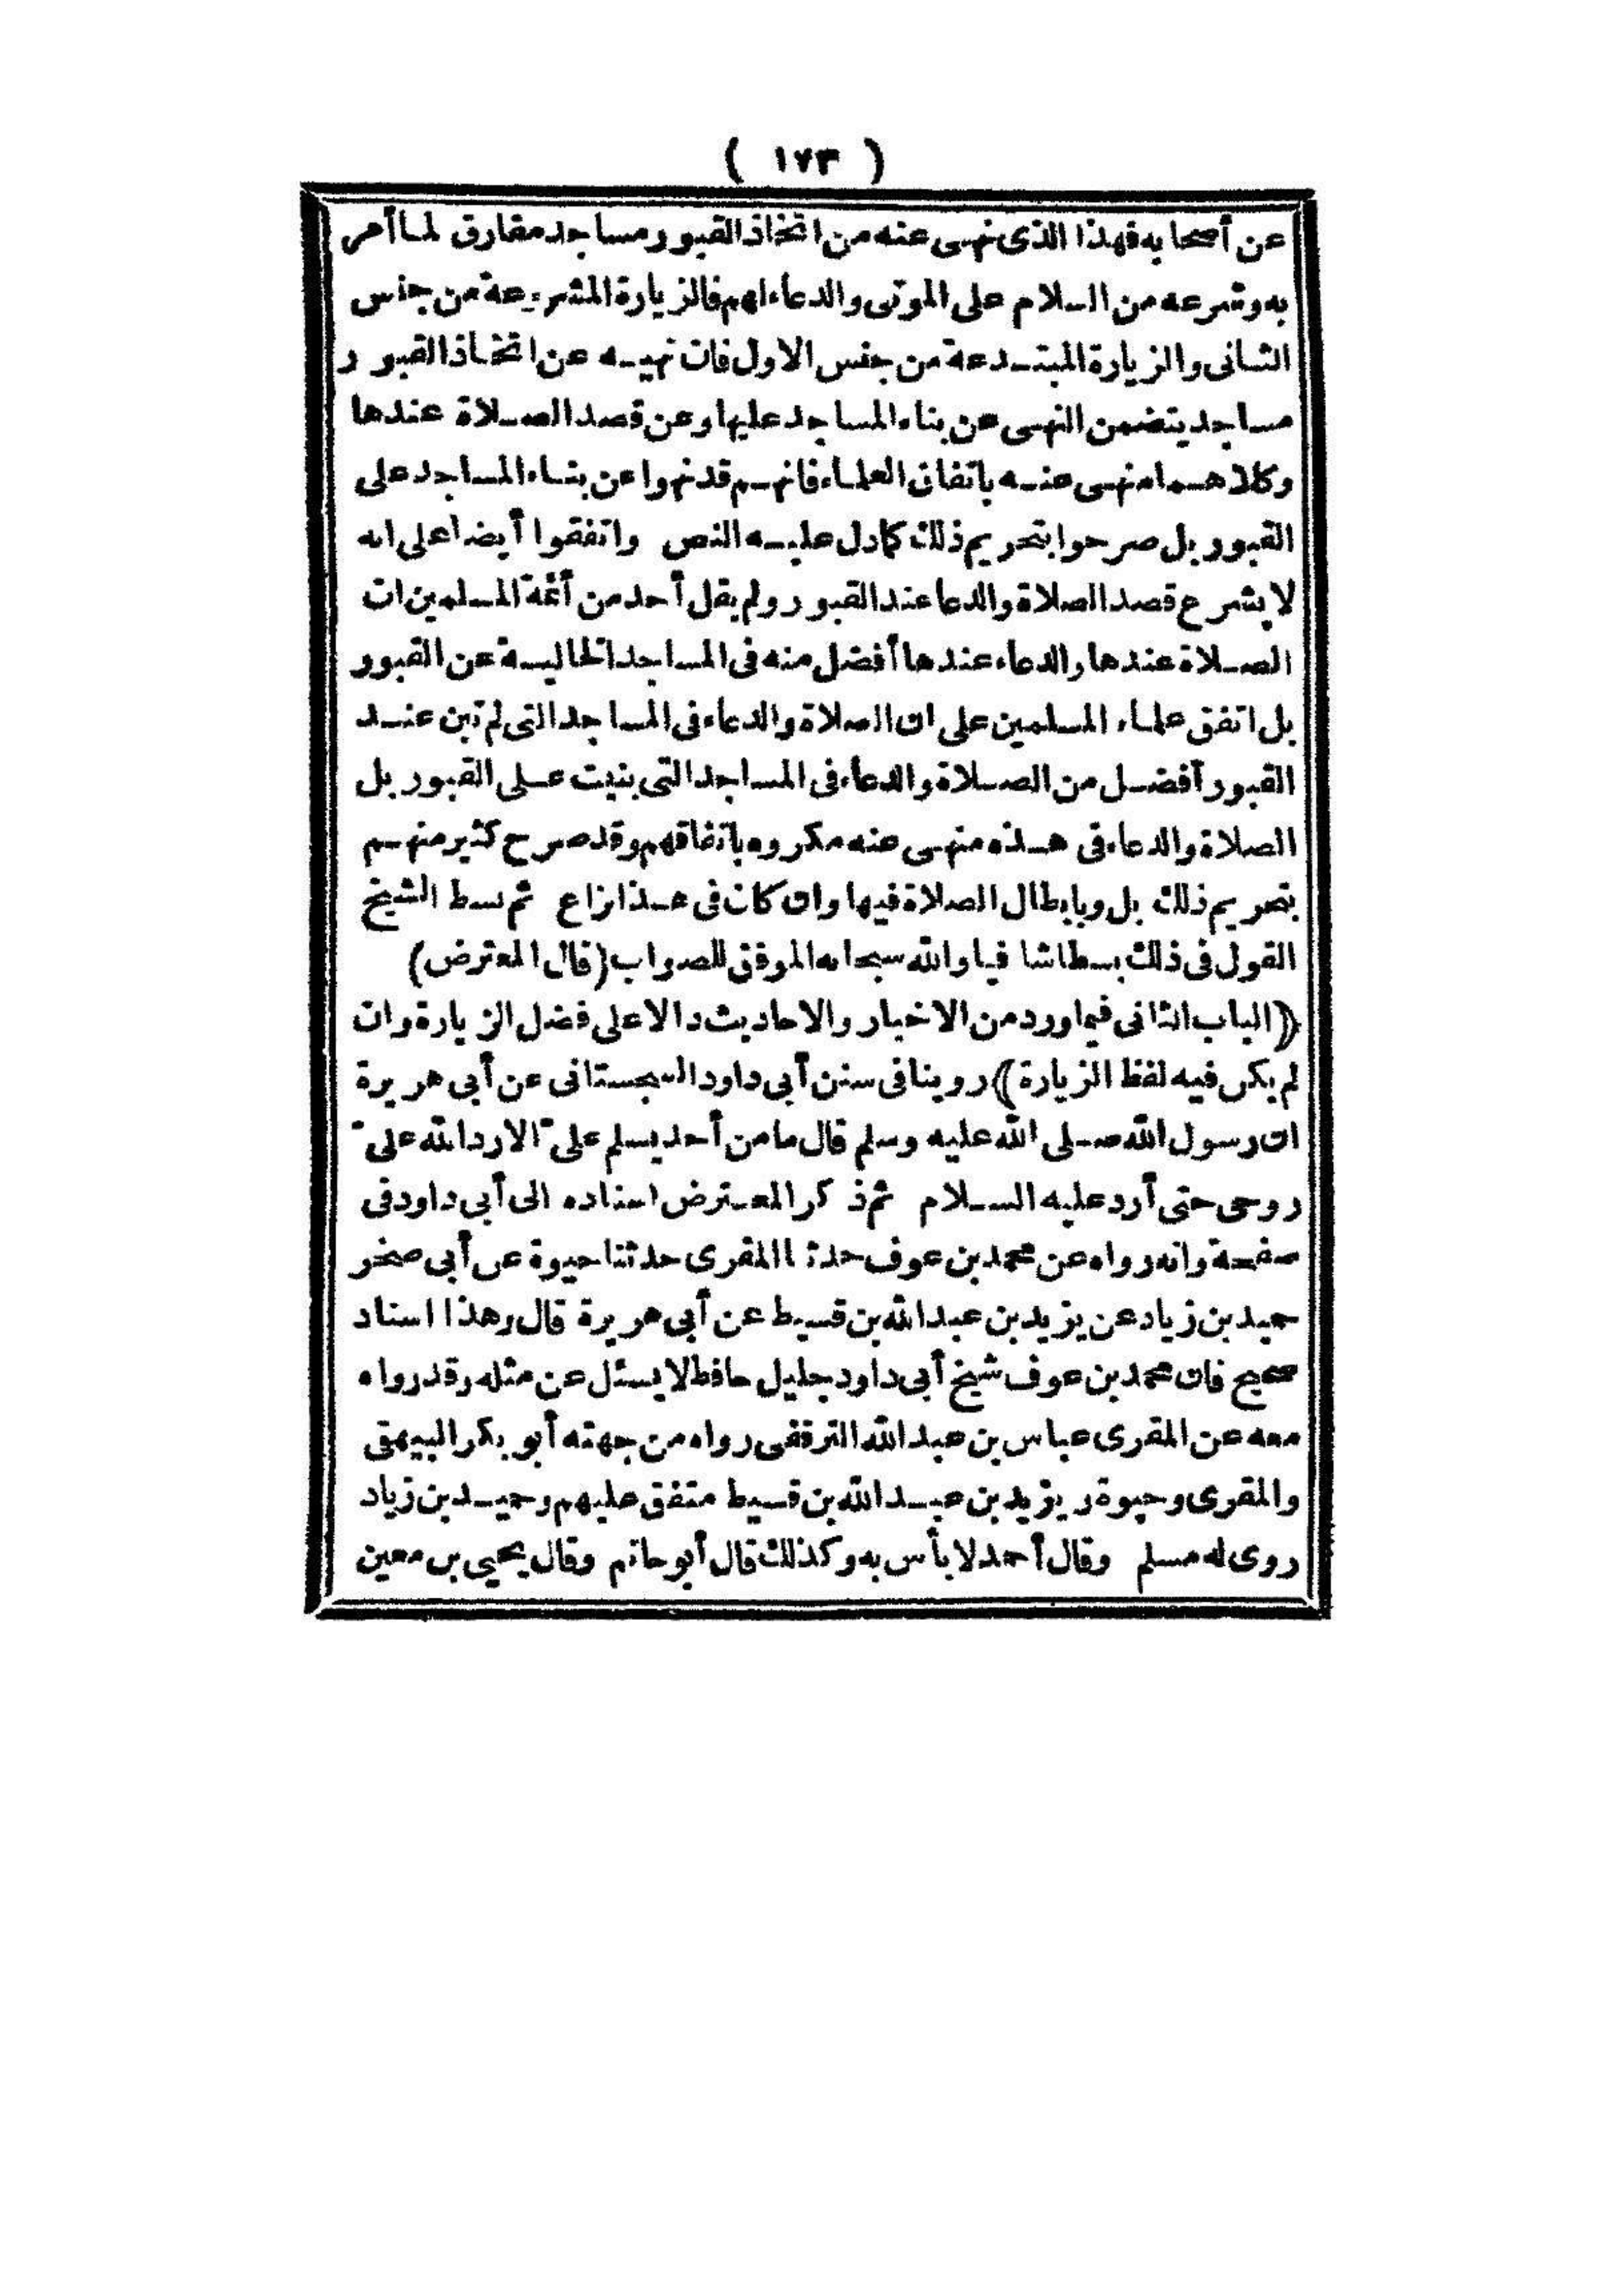 ( ١٧٣ )
عن أصحابه فهذا الذى نهى عنه من اتخاذ القبور مساجد مفارق لما أمر
به وشرعه من السلام على الموتى والدعاء لهم فالزيارة المشروعة من جنس
الثانى والزيارة المبتدعة من جنس الاول فان نهيه عن اتخاذ القبور
مساجد يتضمن النهى عن بناء المساجد عليها وعن قصد الصلاة عندها
وكلاهما منهى عنه باتفاق العلماء فانهم قد نهوا عن بناء المساجد على
القبور بل صرحوا بتحريم ذلك كما دل عليه النص واتفقوا أيضا على انه
لا يشرع قصد الصلاة والدعا عند القبور ولم يقل أحد من أئمة المسلمين ان
الصلاة عندها والدعاء عندها أفضل منه فى المساجد الخالية عن القبور
بل اتفق علماء المسلمين على ان الصلاة والدعاء فى المساجد التى لم تبن عند
القبور أفضل من الصلاة والدعاء فى المساجد التى بنيت على القبور بل
الصلاة والدعاء فى هذه منهى عنه مكروه باتفاقهم وقد صرح كثير منهم
بتحريم ذلك بل وبابطال الصلاة فيها وان كان فى هذا نزاع ثم بسط الشيخ
القول فى ذلك بسطا شافيا والله سبحانه الموفق للصواب (قال المعترض)
﴿الباب الثانى فيما ورد من الاخبار والاحاديث دالا على فضل الزيارة وان
لم يكن فيه لفظ الزيارة﴾ روينا فى سنن أبى داود السجستانى عن أبى هريرة
ان رسول الله صلى الله عليه وسلم قال ما من أحد يسلم علىّ الا رد الله علىّ
روحى حتى أرد عليه السلام ثم ذكر المعترض اسناده الى أبى داود فى
صفحة وانه رواه عن محمد بن عوف حدثنا المقرى حدثنا حيوة عن أبى صخر
حميد بن زياد عن يزيد بن عبد الله بن قسيط عن أبى هريرة قال وهذا اسناد
صحيح فان محمد بن عوف شيخ أبى داود جليل حافظ لا يسئل عن مثله وقد رواه
معه عن المقرى عباس بن عبد الله الترقفى رواه من جهته أبو بكر البيهقى
والمقرى وحيوة ويزيد بن عبد الله بن قسيط متفق عليهم وحميد بن زياد
روى له مسلم وقال أحمد لا بأس به وكذلك قال أبو حاتم وقال يحيى بن معين